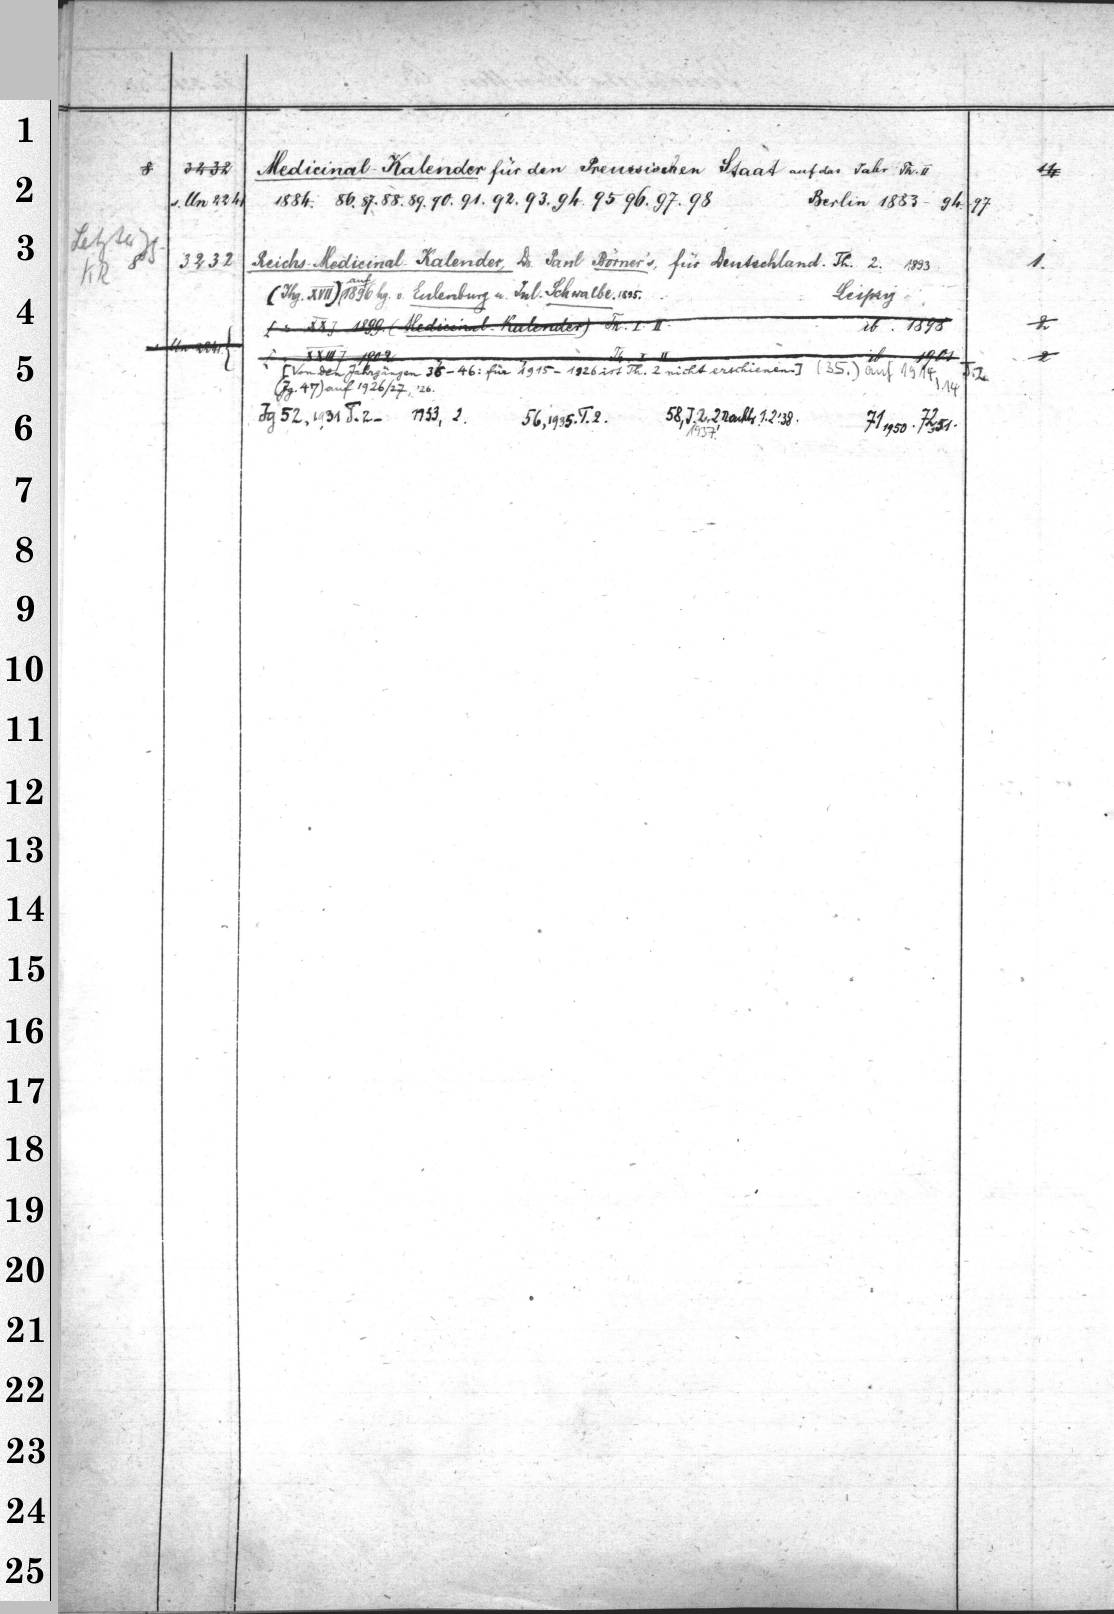 1
2
3
4
5
6
7
8
9
10
11
12
13
14
15
16
17
18
19
20
21
22
23
24
25
8 3232 Medicinal-Kalender für den Preussischen Staat auf das Jahr Th. II 14
s. Un 2241 1884. 86. 87. 88. 89. 90. 91. 92. 93. 94. 95 96. 97. 98 Berlin 1883-94.-97
Letzter Jg
KR
8° 3232 Reichs-Medicinal-Kalender, Dr. Paul Börner's, für Deutschland. Th. 2. 1893 1.
(Jhg. XVII) auf 1896 hg. v. Eulenburg u. Jul. Schwalbe. 1895. Leipzig
[ " XX] 1899. (Medicinal-Kalender) Th. I. II ib. 1898 2
s. Un 2241 { [ " XXIII] 1902 Th. I. II ib 1901 2
[Von den Jahrgängen 36-46: für 1915-1926 ist Th. 2 nicht erschienen.] (35.) auf 1914, 14 T. 2
(Jg. 47) auf 1926/27, '26.
Jg 52, 1931 T. 2- 1933, 2. 56, 1935. T. 2. 58, T. 2. 2 Nachtr. 1. 2. '38. 71 1950. 72 51.
1937